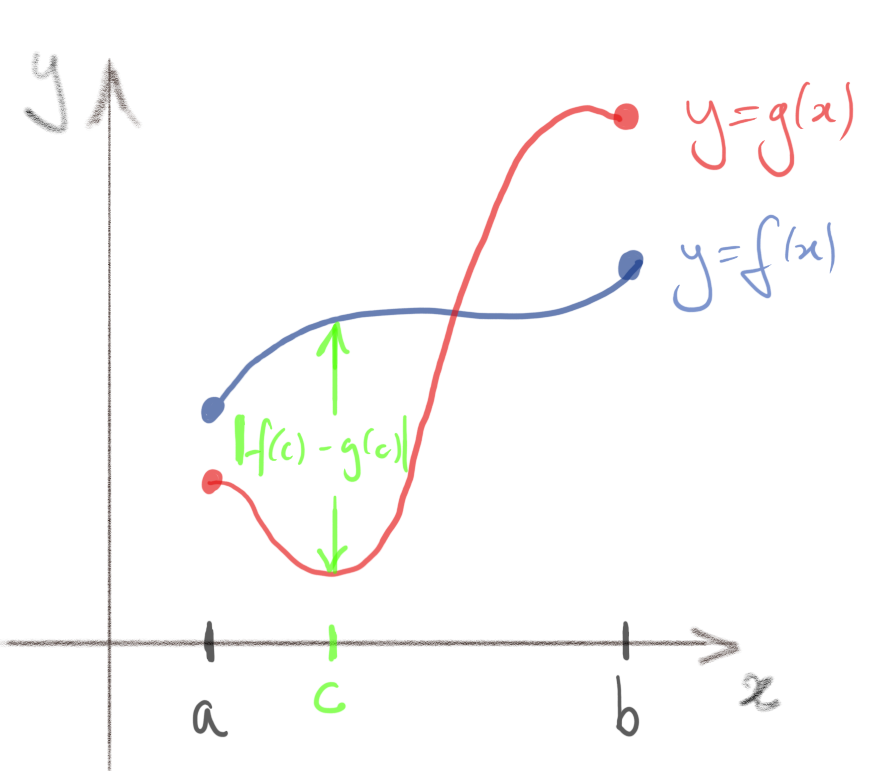 y
y=g(x)
y=f(x)
|f(c) - g(c)|
a
c
b
x